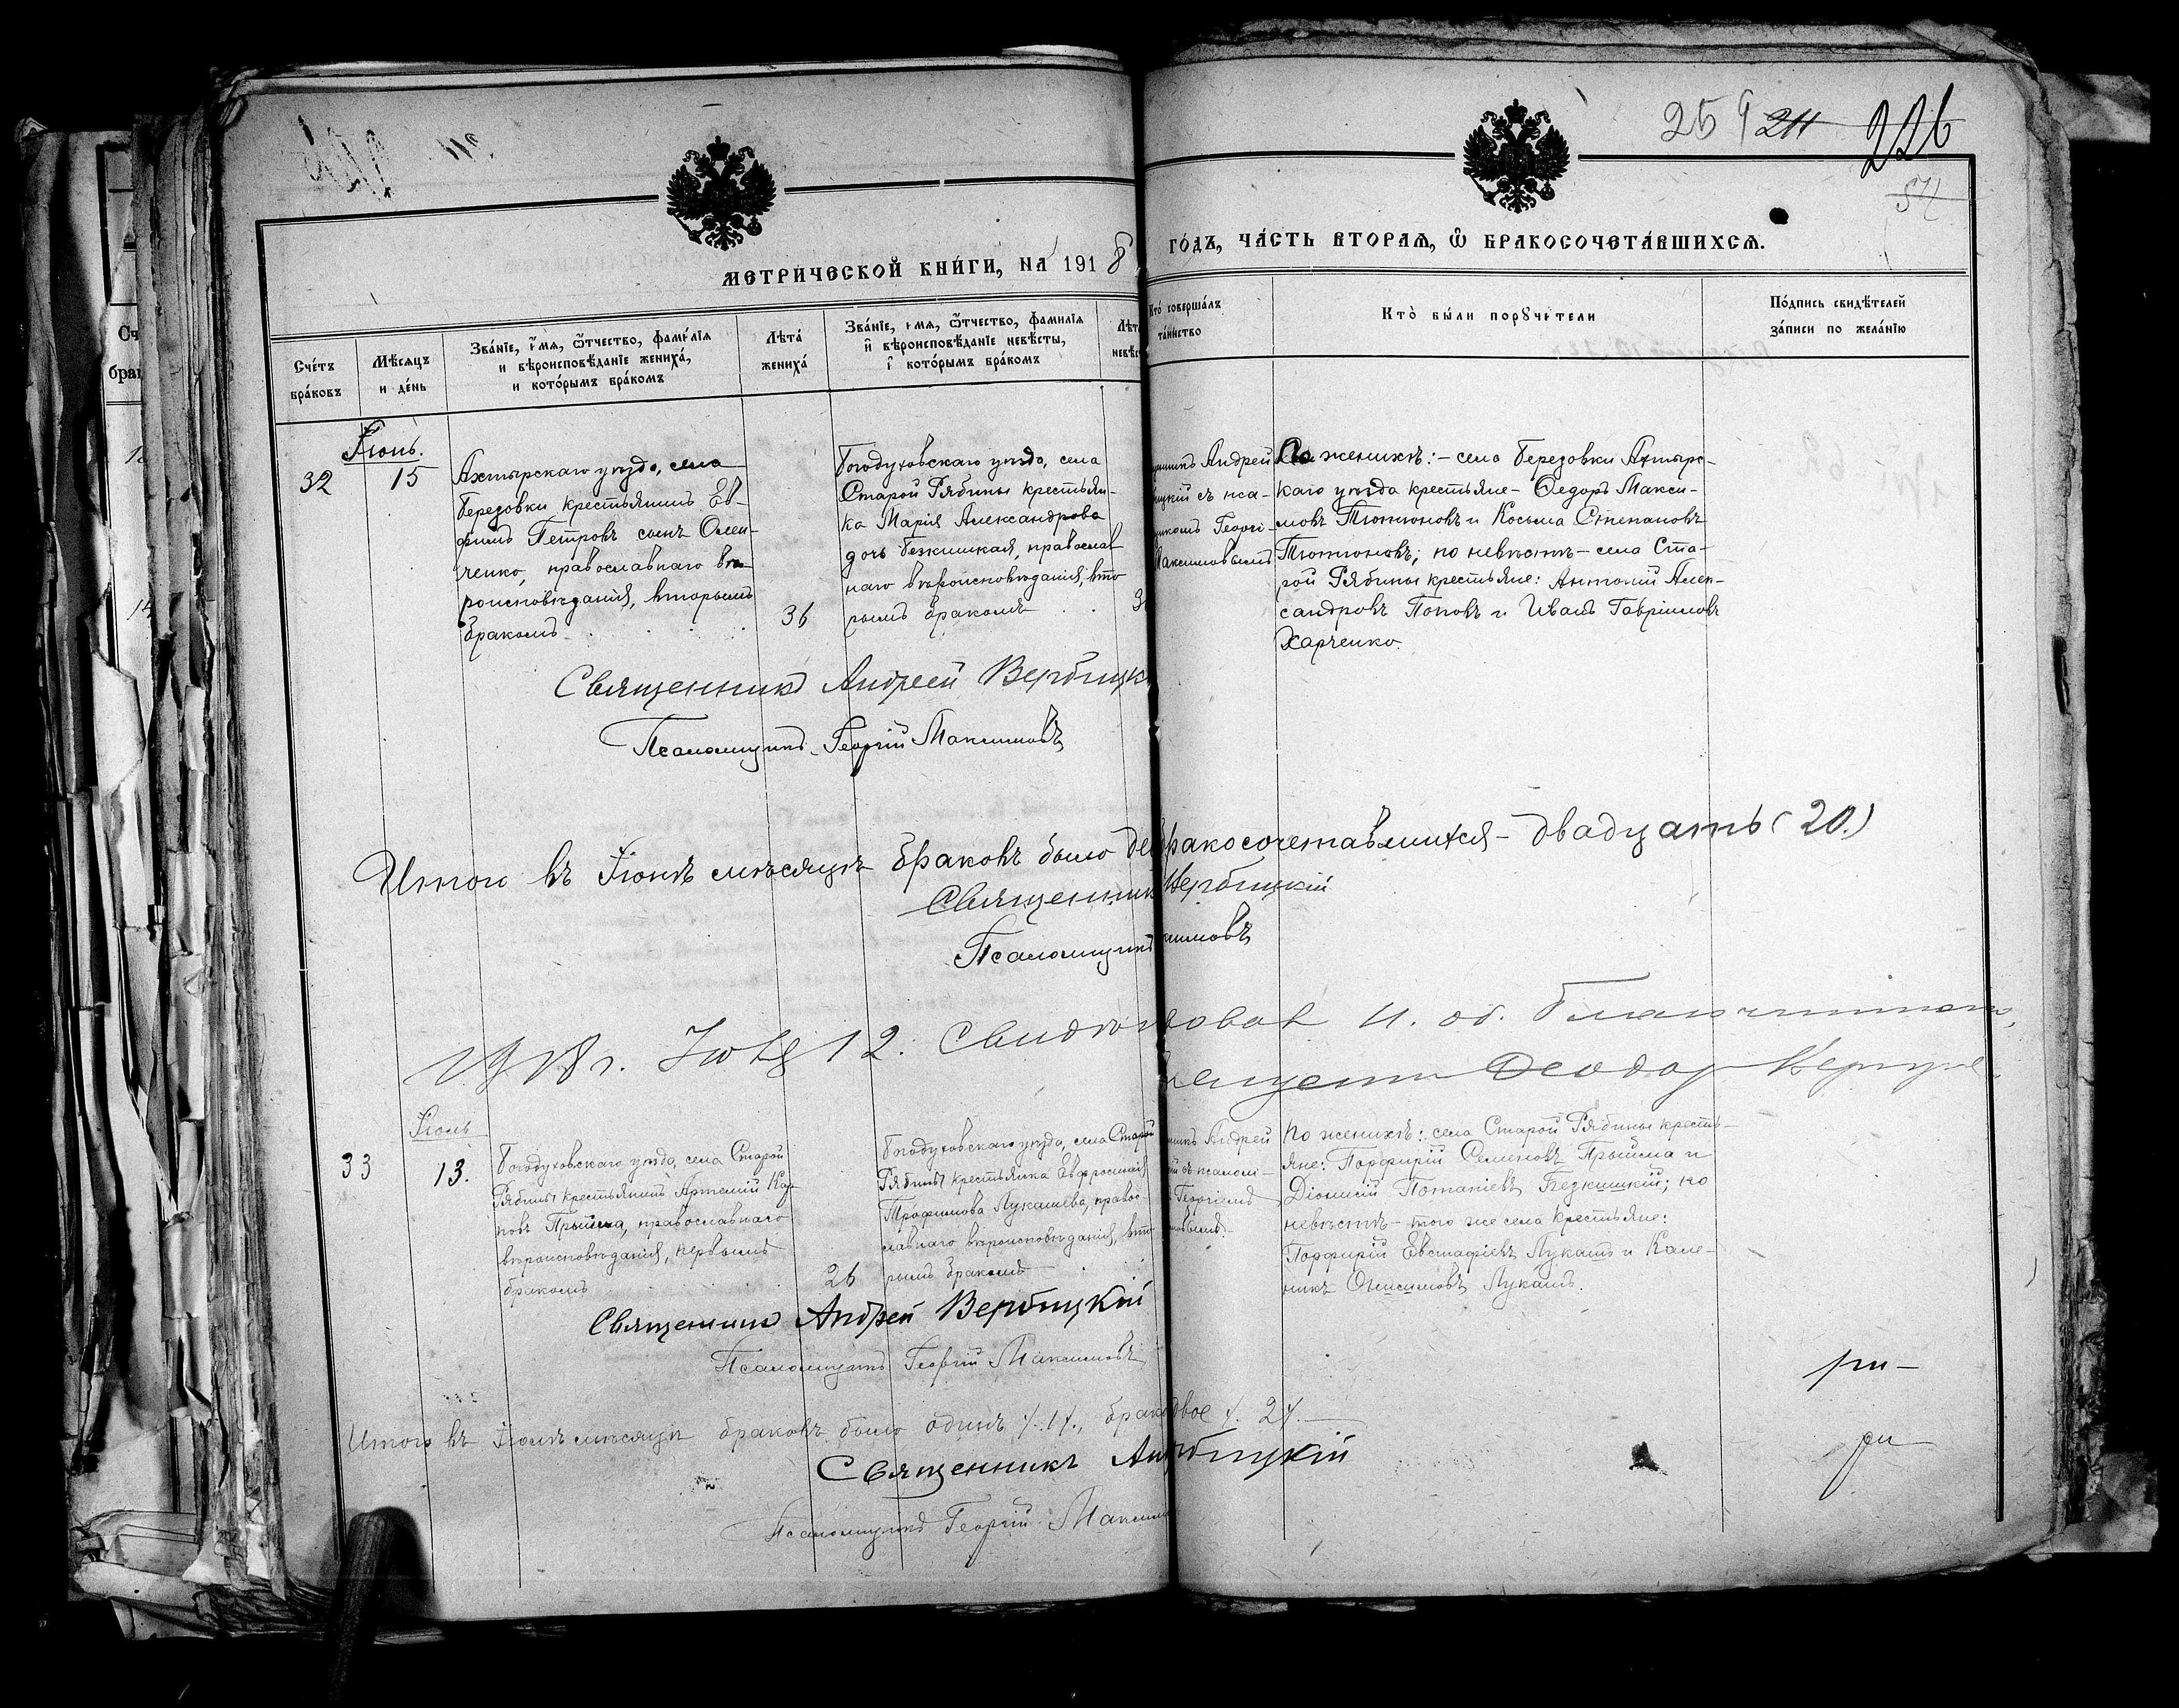 259 211 226
МЕТРИЧЕСКОЙ КНИГИ, НА 1918
ГОДЪ, ЧАСТЬ ВТОРАЯ, Ѡ БРАКОСОЧЕТАВШИХСЯ.
Счетъ браковъ
Мѣсяцъ и день
Званіе, имя, ѿтчество, фамилія
и вѣроисповѣданіе жениха,
и которымъ бракомъ
Лѣта
жениха
Званіе, имя, ѿтчество, фамилія
и вѣроисповѣданіе невѣсты,
и которымъ бракомъ
Лѣта
невѣс
Кто совершалъ
таинство
Кто были поручители
Подпись свидѣтелей
записи по желанію
32
Іюнь.
15
Ахтырскаго уѣзда, села
Березовки крестьянинъ Ев-
фимъ Петровъ сынъ Олей-
ченко, православнаго вѣ-
роисповѣданія, вторымъ
бракомъ
36
Богодуховскаго уѣзда, села
Старой Рябины крестьян-
ка Марія Александрова
дочь Безкишкая, православ
наго вѣроисповѣданія, вто
рымъ бракомъ
Андрей
цкій съ пса-
Георгі-
Максимовымъ
По женихѣ: – села Березовки Ахтырс-
каго уѣзда крестьяне – Ѳедоръ Макси-
мовъ Тютюновъ и Косьма Степановъ
Тютюновъ; по невѣстѣ – села Ста-
рой Рябины крестьяне: Антоній Алек-
сандровъ Поповъ и Иванъ Гавріиловъ
Харченко.
Священникъ Андрей Вербицк
Псаломщикъ Георгій Максимовъ
Итого въ Іюнѣ мѣсяцѣ браковъ было де бракосочетавшихся – двадцать (20.)
Священник Вербицкій
Псаломщикъ симовъ
1918 г. Іюля 12. Свидѣт
Ѳеодор
33
Іюль
13.
Богодуховскаго уѣзда, села Старой
Рябины крестьянинъ Артемій Кар
повъ Прыйма, православнаго
вѣроисповѣданія, первымъ
бракомъ
26
Богодуховскаго уѣзда, села Старой
Рябины крестьянка Евфросинія
Трофимова Лукашева, правос-
лавнаго вѣроисповѣданія, вто
рымъ бракомъ
Андрей
ій съ псалом-
Георгіемъ
мовымъ.
По женихѣ: села Старой Рябины кресть-
яне: Порфирій Семеновъ Прыйма и
Діонисій Потапіевъ Безкишкій; по
невѣстѣ – того же села крестьяне:
Порфирій Евстафіевъ Лукашъ и Кале-
никъ Онисимовъ Лукашъ.
Священникъ Андрей Вербицкій
Псаломщикъ Георгій Максимовъ
Итого въ Іюлѣ мѣсяцѣ браковъ было одинъ /.1/., брако двое /. 2/.
Священникъ Ан рбицкій
Псаломщикъ Георгій Максим